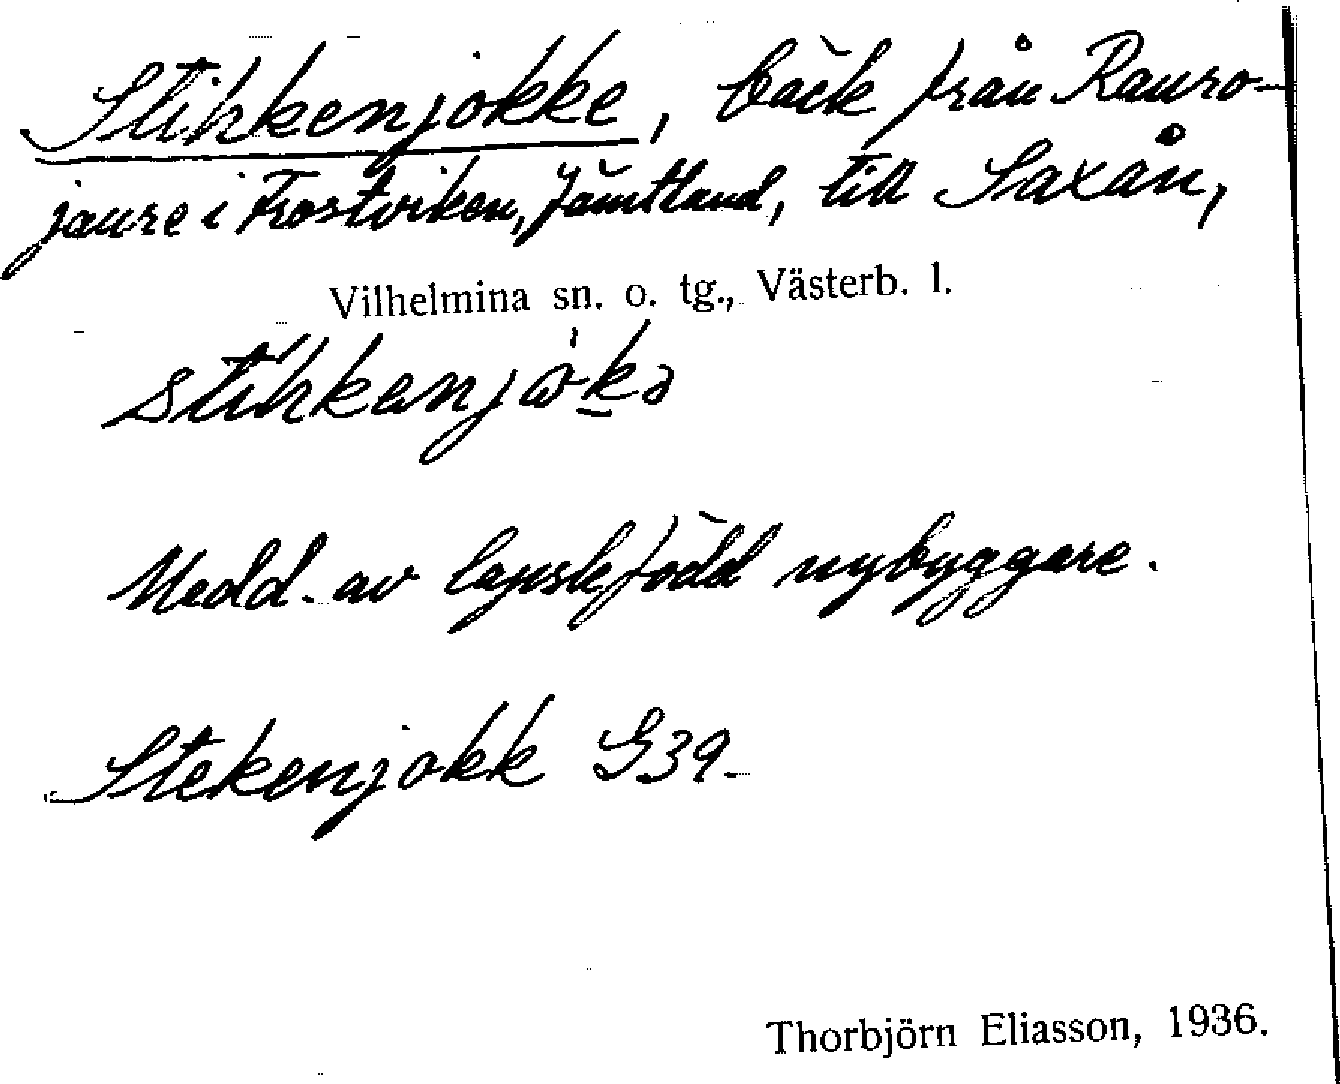 Stihkenjokke, bäck från Rauro-
jaure i Frostviken, Jämtland, till Saxån,
Vilhelmina sn. o. tg., Västerb. l.
stihkenjåkə
Medd. av lapskfödd nybyggare.
Stekenjokk G39
Thorbjörn Eliasson, 1936.